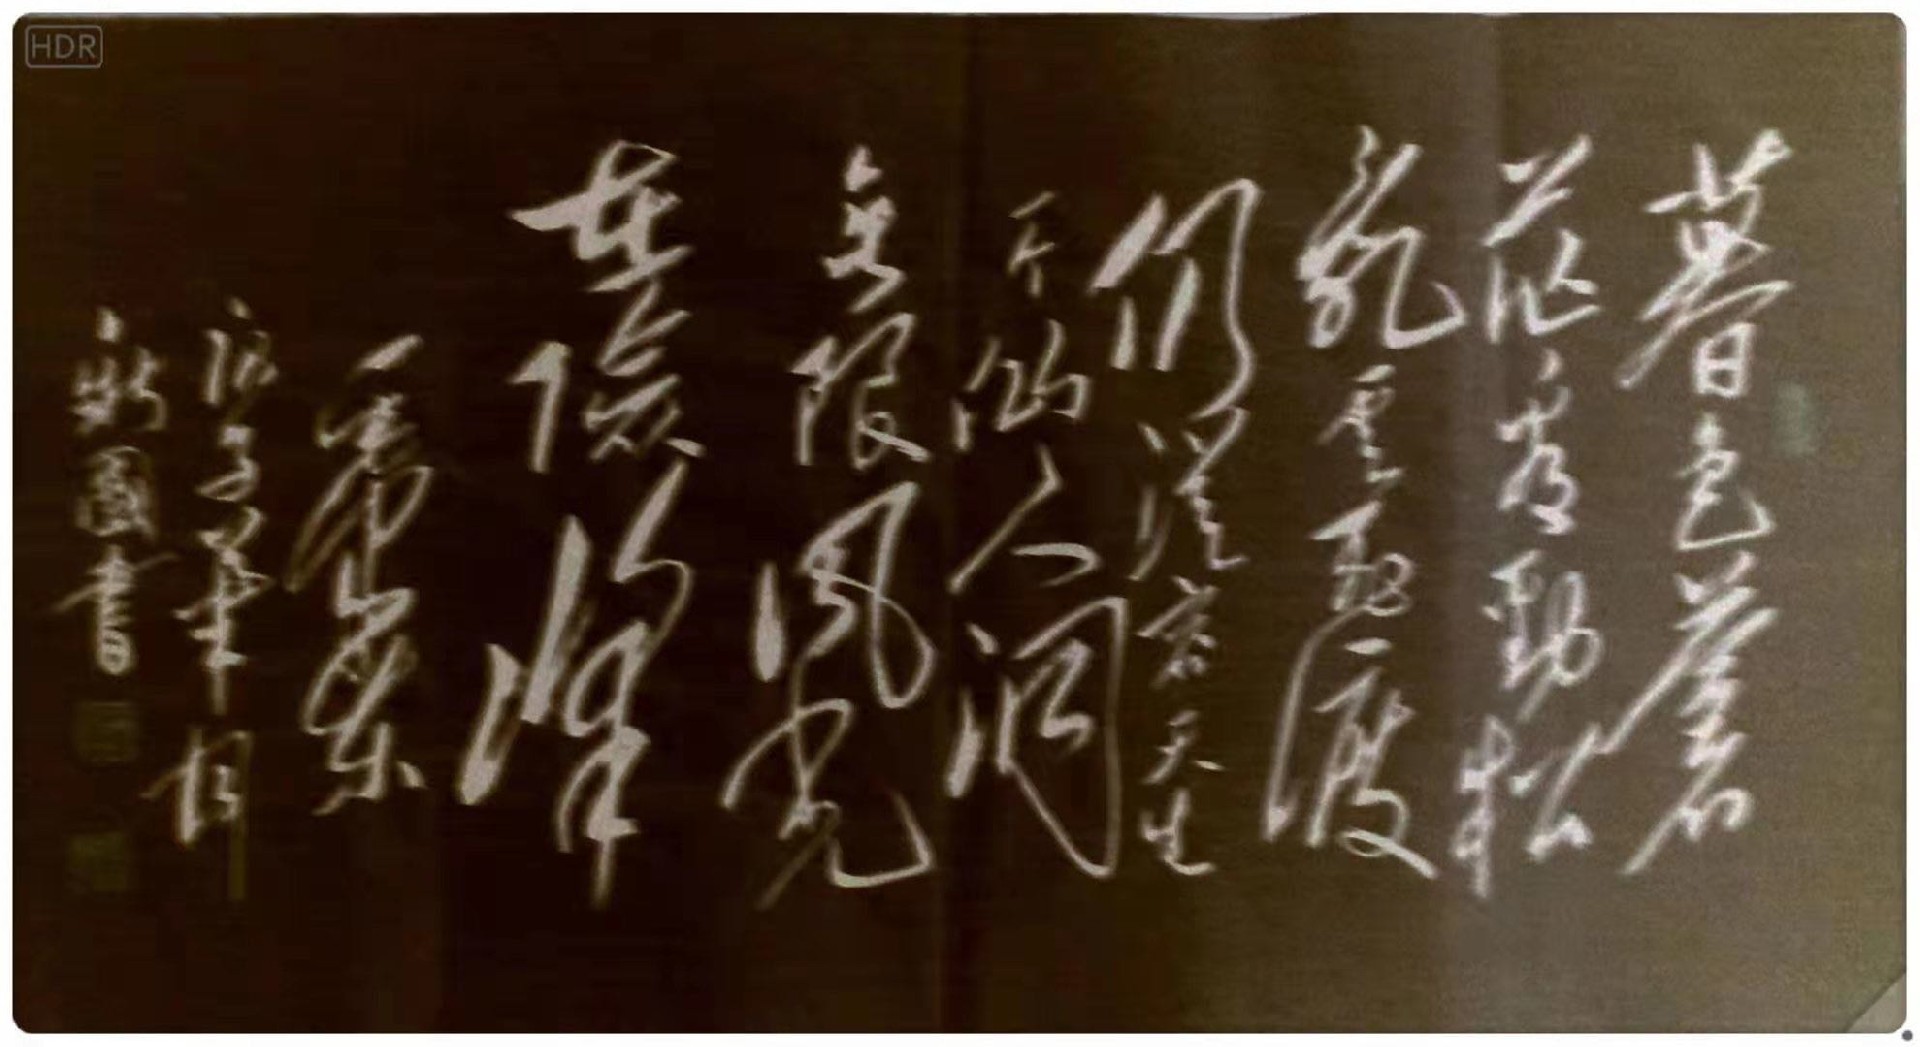 暮色蒼
茫看勁松
亂雲飛渡
仍從容天生
一个仙人洞
無限風光
在險峰
毛澤東
國書
HDR